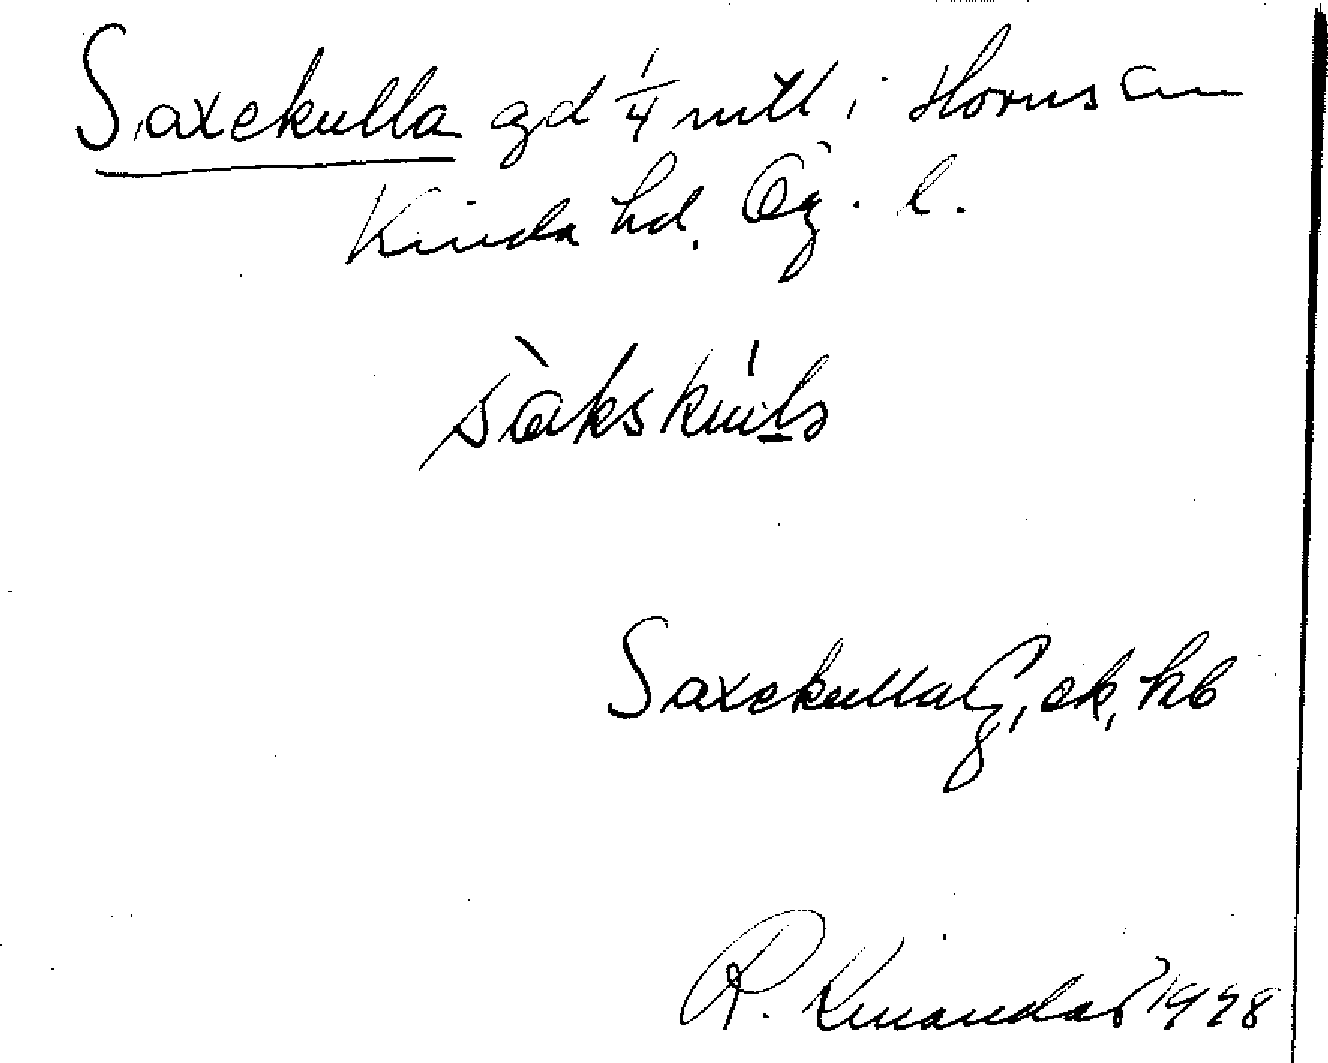 Saxekulla gd 1/4 mtl i Horns sn
Kinda hd. Ög. l.
Saxekulla G, ek, hb
R. Kinandar 1928